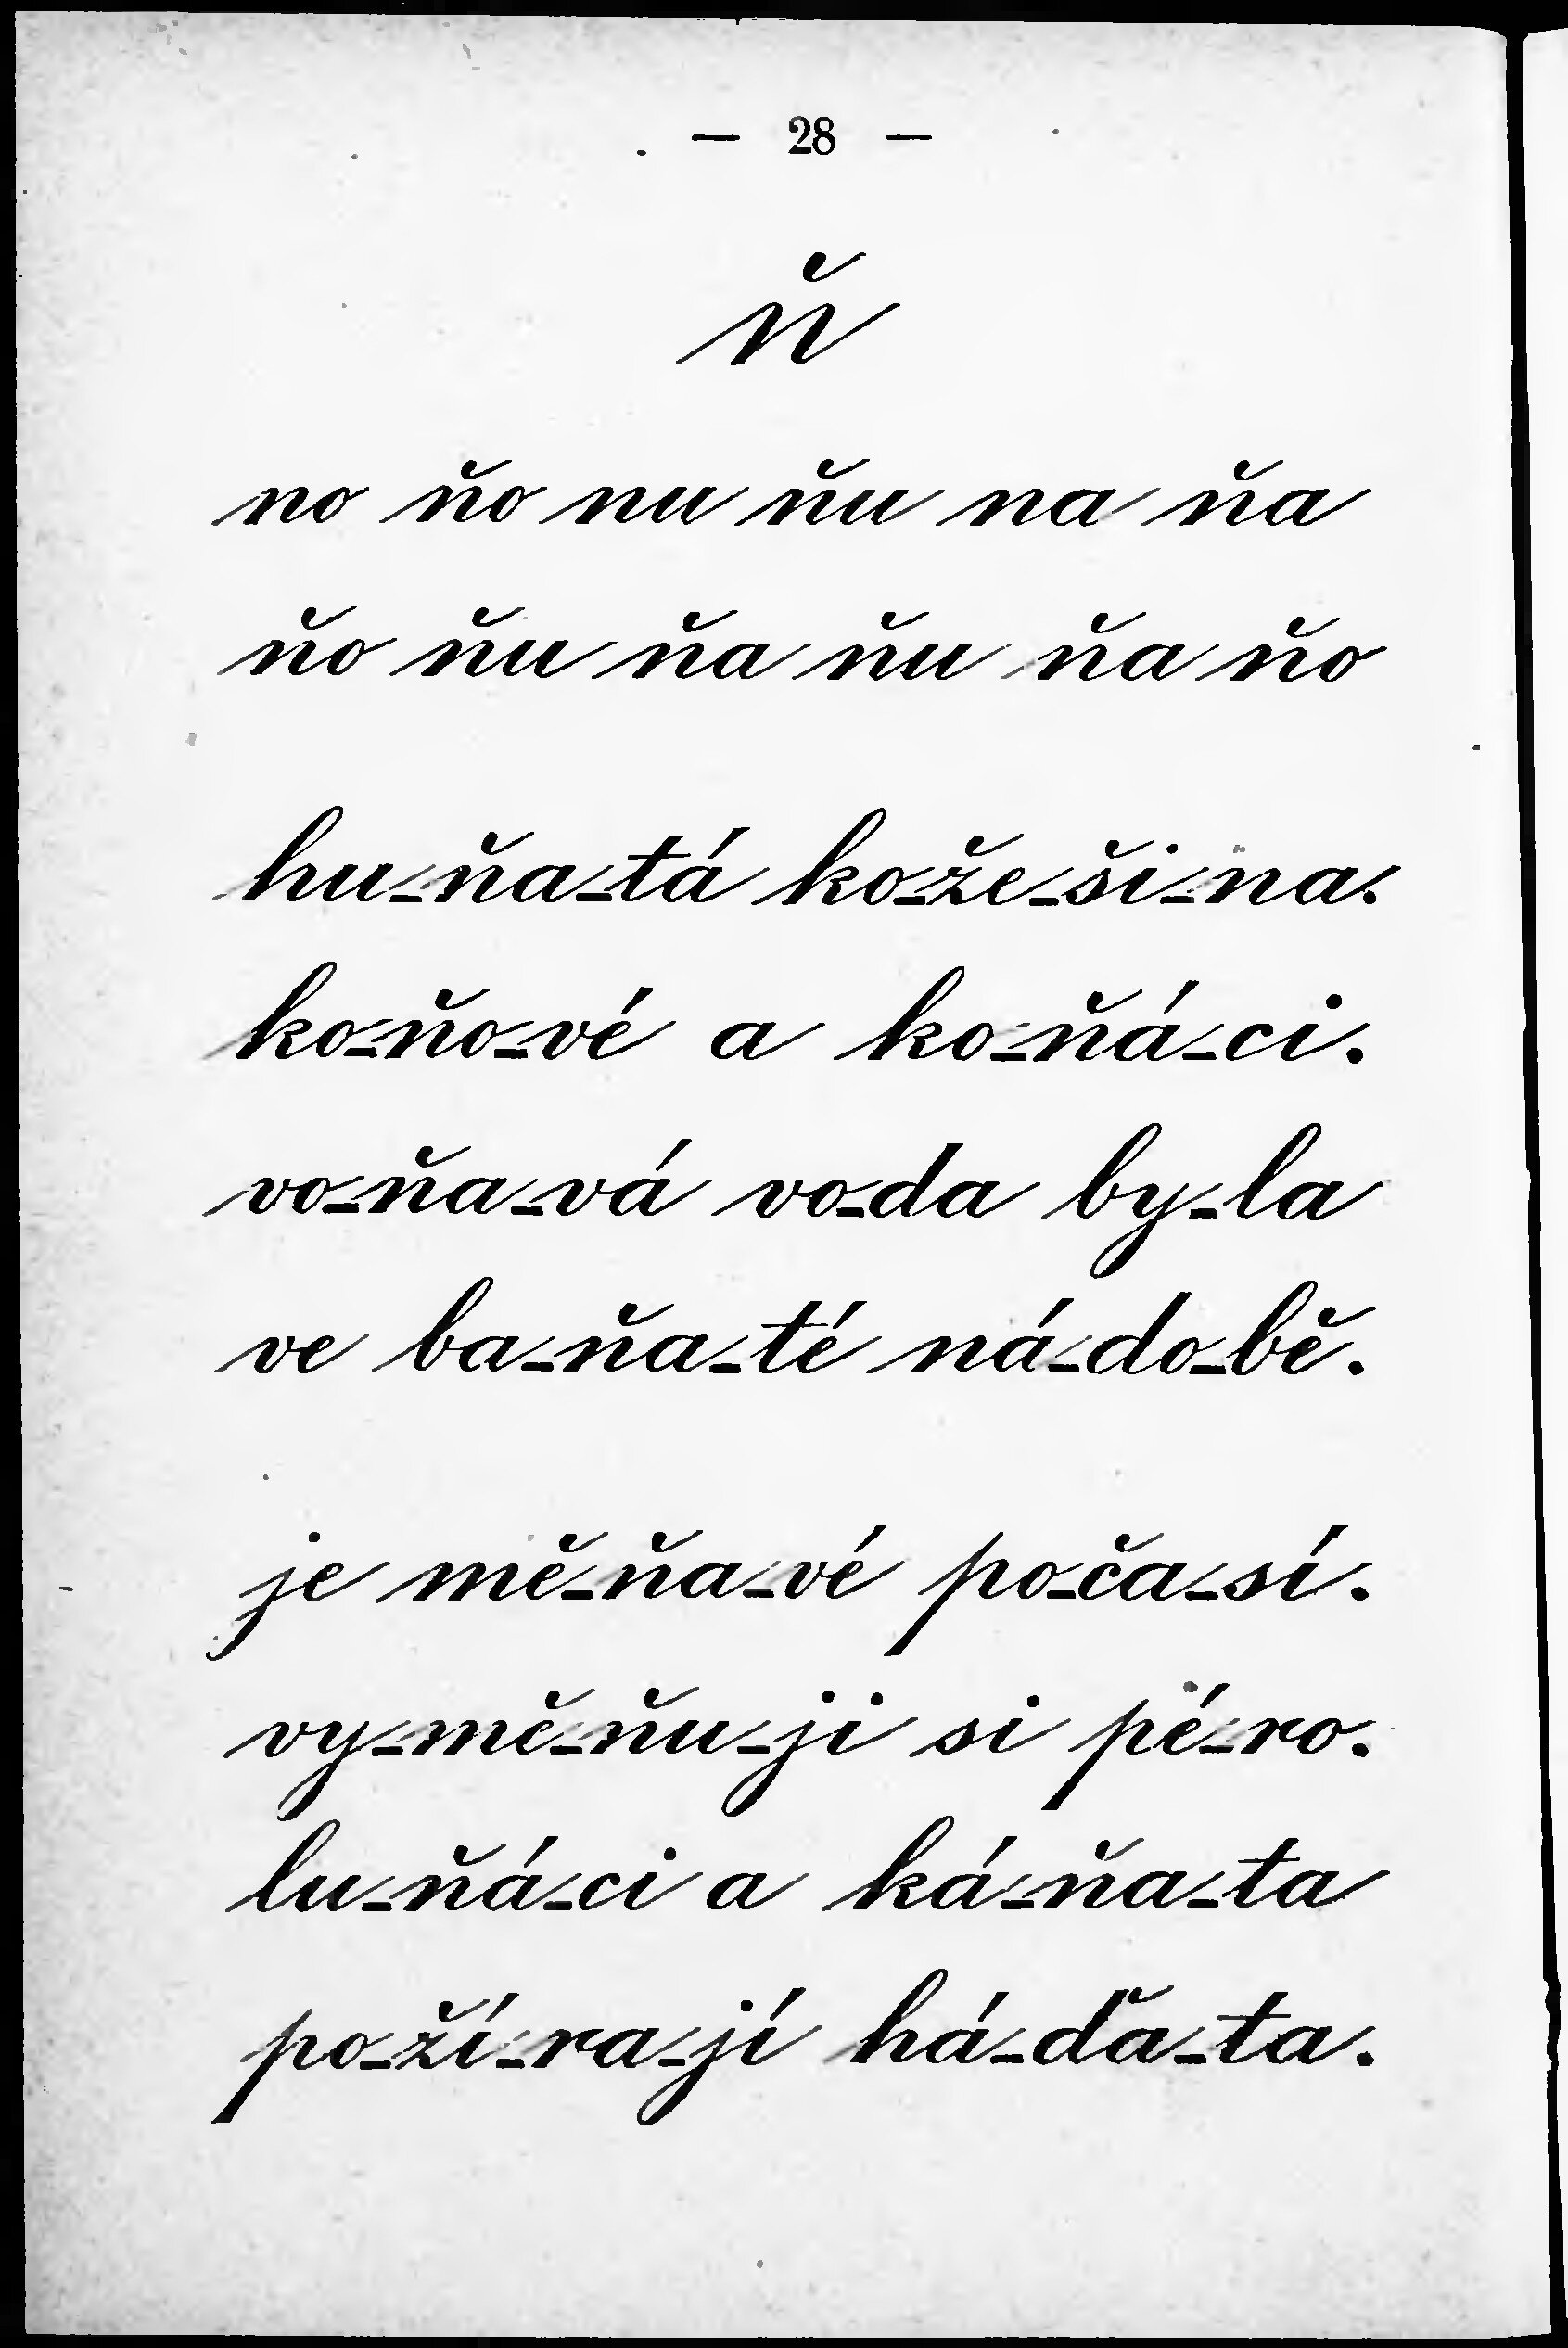 — 28 —
ň
no ňo nu ňu na ňa
ňo ňu ňa ňu ňa ňo
hu-ňa-tá ko-že-ši-na.
ko-ňo-vé a ko-ňá-ci.
vo-ňa-vá vo-da by-la
ve ba-ňa-té ná-do-bě.
je mě-ňa-vé po-ča-sí.
vy-mě-ňu-ji si pé-ro.
lu-ňá-ci a ká-ňa-ta
po-ží-ra-jí há-ďa-ta.